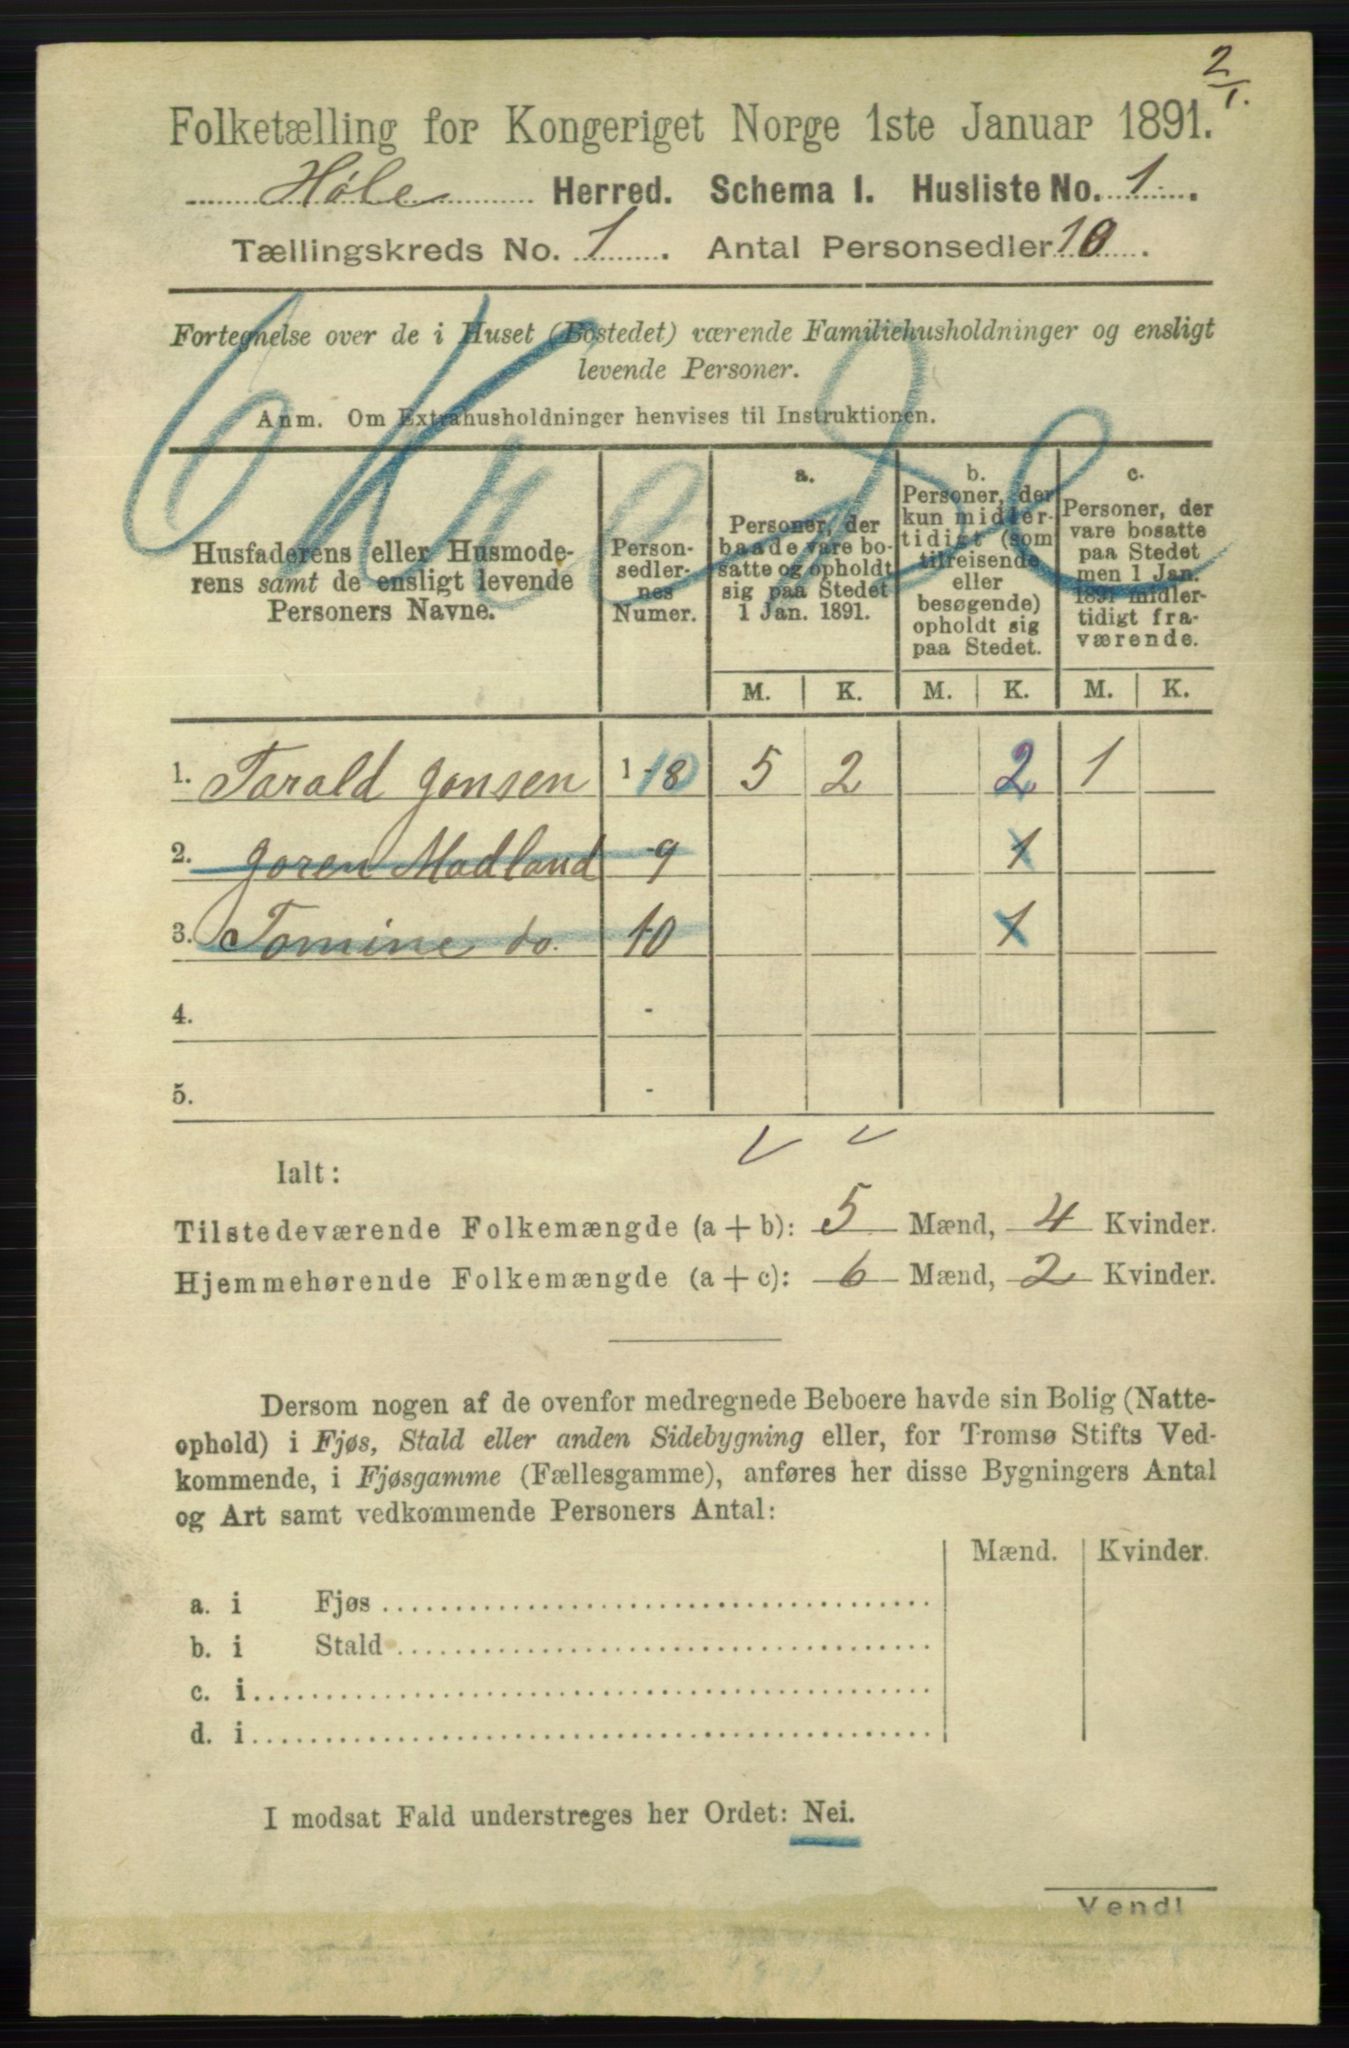 2/1.
Folketælling for Kongeriget Norge 1ste Januar 1891.
Høle Herred. Schema I. Husliste No. 1.
Tællingskreds No. 1. Antal Personsedler 10.
Fortegnelse over de i Huset (Bostedet) værende Familiehusholdninger og ensligt
levende Personer.
Anm. Om Extrahusholdninger henvises til Instruktionen.
Husfaderens eller Husmode-
rens samt de ensligt levende
Personers Navne.
Person-
sedler-
nes
Numer.
a.
Personer, der
baade vare bo-
satte og opholdt
sig paa Stedet
1 Jan. 1891.
b.
Personer, der
kun midler-
tidigt (som
tilreisende
eller
besøgende)
opholdt sig
paa Stedet.
c.
Personer, der
vare bosatte
paa Stedet
men 1 Jan.
1891 midler-
tidigt fra-
værende.
M. K. M. K. M. K.
1. Tarald Jonsen 1 - 10 5 2 2 1
2. Joren Madland - 9 1
3. Tomine do. 10 1
4. -
5. -
Ialt:
Tilstedeværende Folkemængde (a + b): 5 Mænd, 4 Kvinder.
Hjemmehørende Folkemængde (a + c): 6 Mænd, 2 Kvinder.
Dersom nogen af de ovenfor medregnede Beboere havde sin Bolig (Natte-
ophold) i Fjøs, Stald eller anden Sidebygning eller, for Tromsø Stifts Ved-
kommende, i Fjøsgamme (Fællesgamme), anføres her disse Bygningers Antal
og Art samt vedkommende Personers Antal:
Mænd. Kvinder.
a. i Fjøs
b. i Stald
c. i
d. i
I modsat Fald understreges her Ordet: Nei.
Vend!